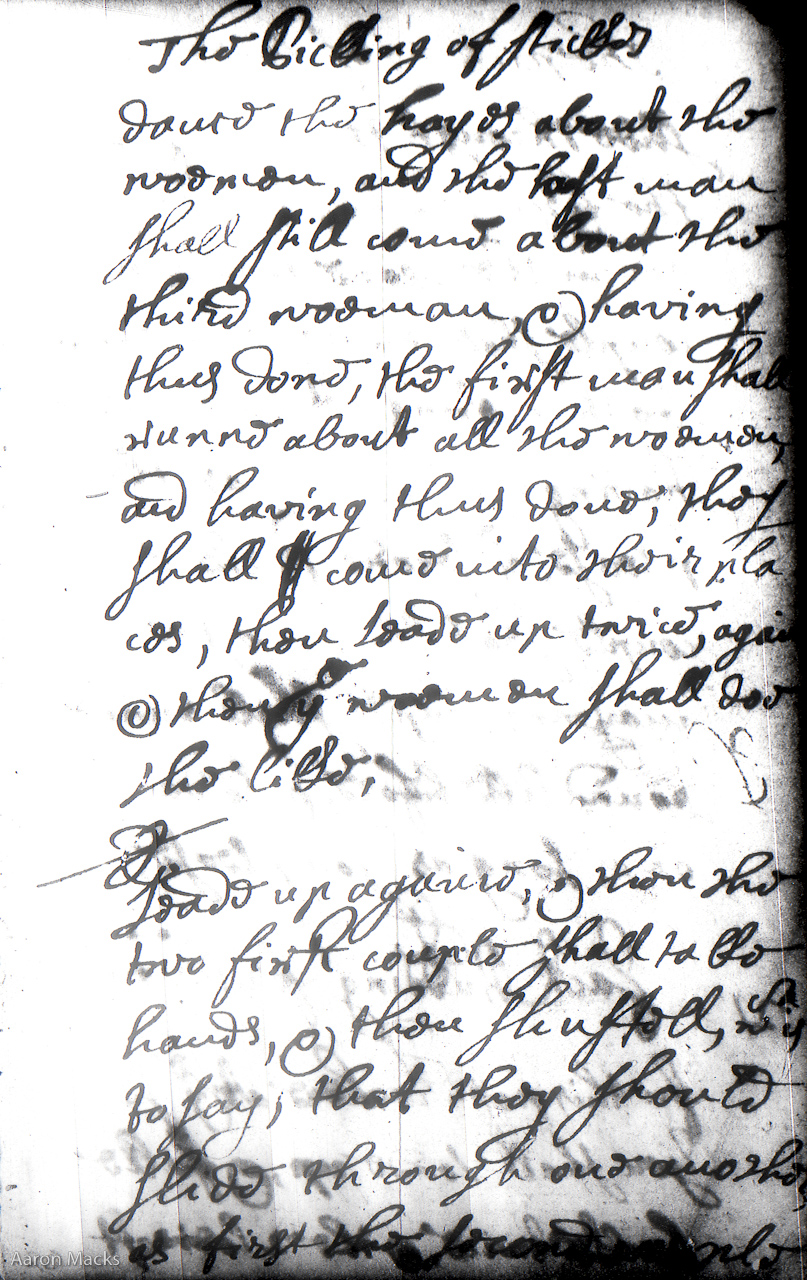 The Picking of stickes
daunce the hayes about the
woemen, and the last man
shall still come about the
third woeman, & having
thus done, the first man shall
runne about all the woemen,
and having thus done, they
shall come into their pla
ces, then leade up twice, again
& then ye woemen shall doe
the like,
Leade up againe, & then the
two first couple shall take
hands, & then shuffell, wch is
to say, that they should
slide through one another
as first the second couple
Aaron Macks